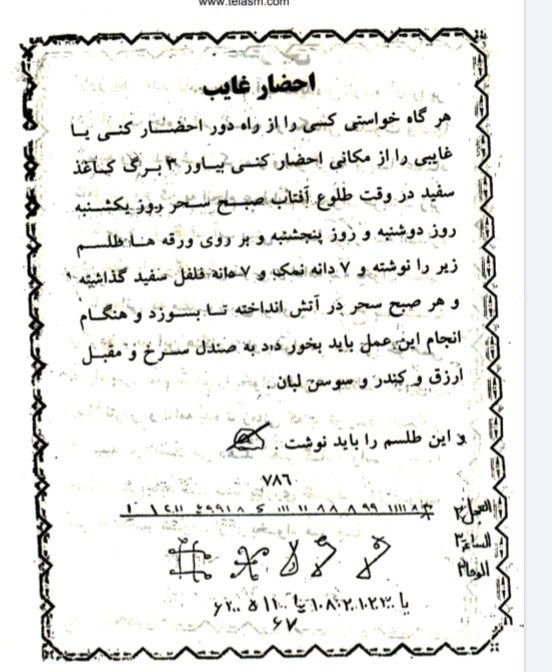 www.telasm.com
احضار غایب
هر گاه خواستی کسی را از راه دور احضار کنی یا
غایبی را از مکانی احضار کنی بیاور ۳ برگ کاغذ
سفید در وقت طلوع آفتاب صبح سحر روز یکشنبه
روز دوشنبه و روز پنجشنبه و بر روی ورقه ها طلسم
زیر را نوشته و ۷ دانه نمک و ۷ دانه فلفل سفید گذاشته
و هر صبح سحر در آتش انداخته تا بسوزد و هنگام
انجام این عمل باید بخور دد به صندل سرخ و مقبل
ارزق و کندر و سوسن لبان .
و این طلسم را باید نوشت .
۷۸۶
العجل ۳
الساعة ۳
الوحا ۳
۶۷